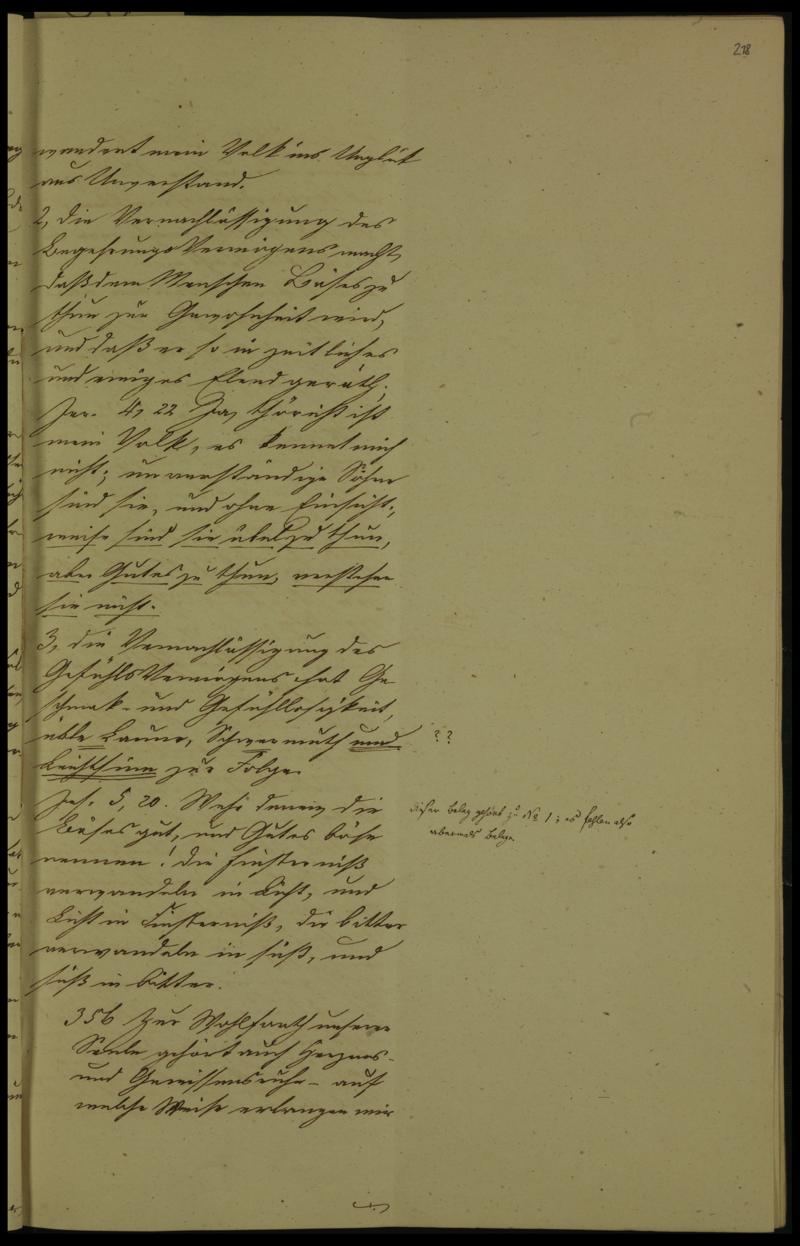 218
wandert mein Volk ins Unglük
aus Unverstand.
2, die Vernachlässigung des
BegehrungsVermögens macht,
daß dem Menschen Böses zu
thun zur Gewohnheit wird,
und daß er so in zeitliches
und ewiges Elend geräth.
Jer. 4, 22 Ja, thöricht ist
mein Volk, es kennet mich
nicht; unverständige Söhne
sind sie, und ohne Einsicht;
weise sind sie übel zu thun,
aber Gutes zu thun, verstehen
sie nicht.
3, die Vernachlässigung des
GefühlsVermögens hat Ge
schmak- und Gefühllosigkeit,
üble Laune, Schwermuth und
Leichtsinn zur Folge.
??
Jes. 5, 20. Wehe denen, die
Böses gut, und Gutes böse
nennen! die Finsterniß
verwandeln in Licht, und
Licht in Finsterniß, die bitter
verwandeln in süß, und
süß in bitter.
dieser Beleg gehört zu No 1; es fehlen also
abermals Belege
356 Zur Wohlfarth unserer
Seele gehört auch Herzens-
und Gewissensruhe – auf
welche Weise erlangen wir